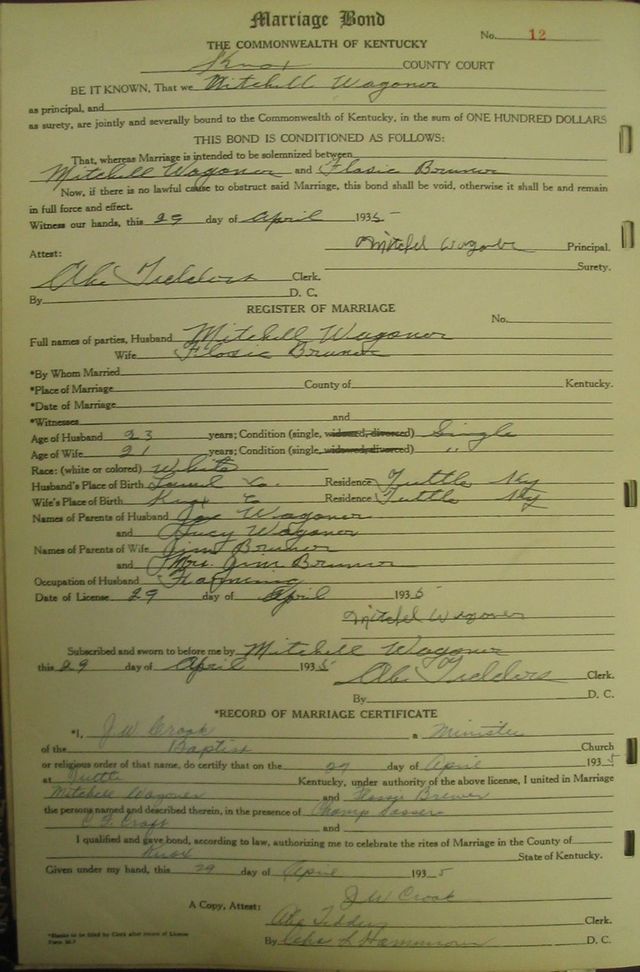 Marriage Bond
No. 12
THE COMMONWEALTH OF KENTUCKY
Knox COUNTY COURT
BE IT KNOWN, That we Mitchell Wagoner
as principal, and
as surety, are jointly and severally bound to the Commonwealth of Kentucky, in the sum of ONE HUNDRED DOLLARS
THIS BOND IS CONDITIONED AS FOLLOWS:
That, whereas Marriage is intended to be solemnized between
Mitchell Wagoner and Flosie Bruner
Now, if there is no lawful cause to obstruct said Marriage, this bond shall be void, otherwise it shall be and remain
in full force and effect.
Witness our hands, this 29 day of April 1935
Mitchel Wagoner Principal.
Attest: Surety.
Abe Tedders Clerk.
By D. C.
REGISTER OF MARRIAGE
No.
Full names of parties, Husband Mitchell Wagoner
Wife Flosie Bruner
*By Whom Married
*Place of Marriage County of Kentucky.
*Date of Marriage
*Witnesses and
Age of Husband 23 years; Condition (single, widowed, divorced) Single
Age of Wife 21 years; Condition (single, widowed, divorced) "
Race: (white or colored) White
Husband's Place of Birth Laurel Co. Residence Tuttle Ky
Wife's Place of Birth Knox Co Residence Tuttle Ky
Names of Parents of Husband Joe Wagoner
and Lucy Wagoner
Names of Parents of Wife Jim Bruner
and Mrs. Jim Bruner
Occupation of Husband Farming
Date of License 29 day of April 1935
Mitchel Wagoner
Subscribed and sworn to before me by Mitchell Wagoner
this 29 day of April 1935
Abe Tedders Clerk.
By D. C.
*RECORD OF MARRIAGE CERTIFICATE
*I, J. W. Crook a Minister
of the Baptist Church
or religious order of that name, do certify that on the 29 day of April 1935
at Tuttle Kentucky, under authority of the above license, I united in Marriage
Mitchell Wagoner and Flossye Brewer
the persons named and described therein, in the presence of Champ Sasser
and
I qualified and gave bond, according to law, authorizing me to celebrate the rites of Marriage in the County of
Knox State of Kentucky.
Given under my hand, this 29 day of April 1935
J W Crook
A Copy, Attest: Abe Tedders Clerk.
By D. C.
*Blanks to be filled by Clerk after return of License